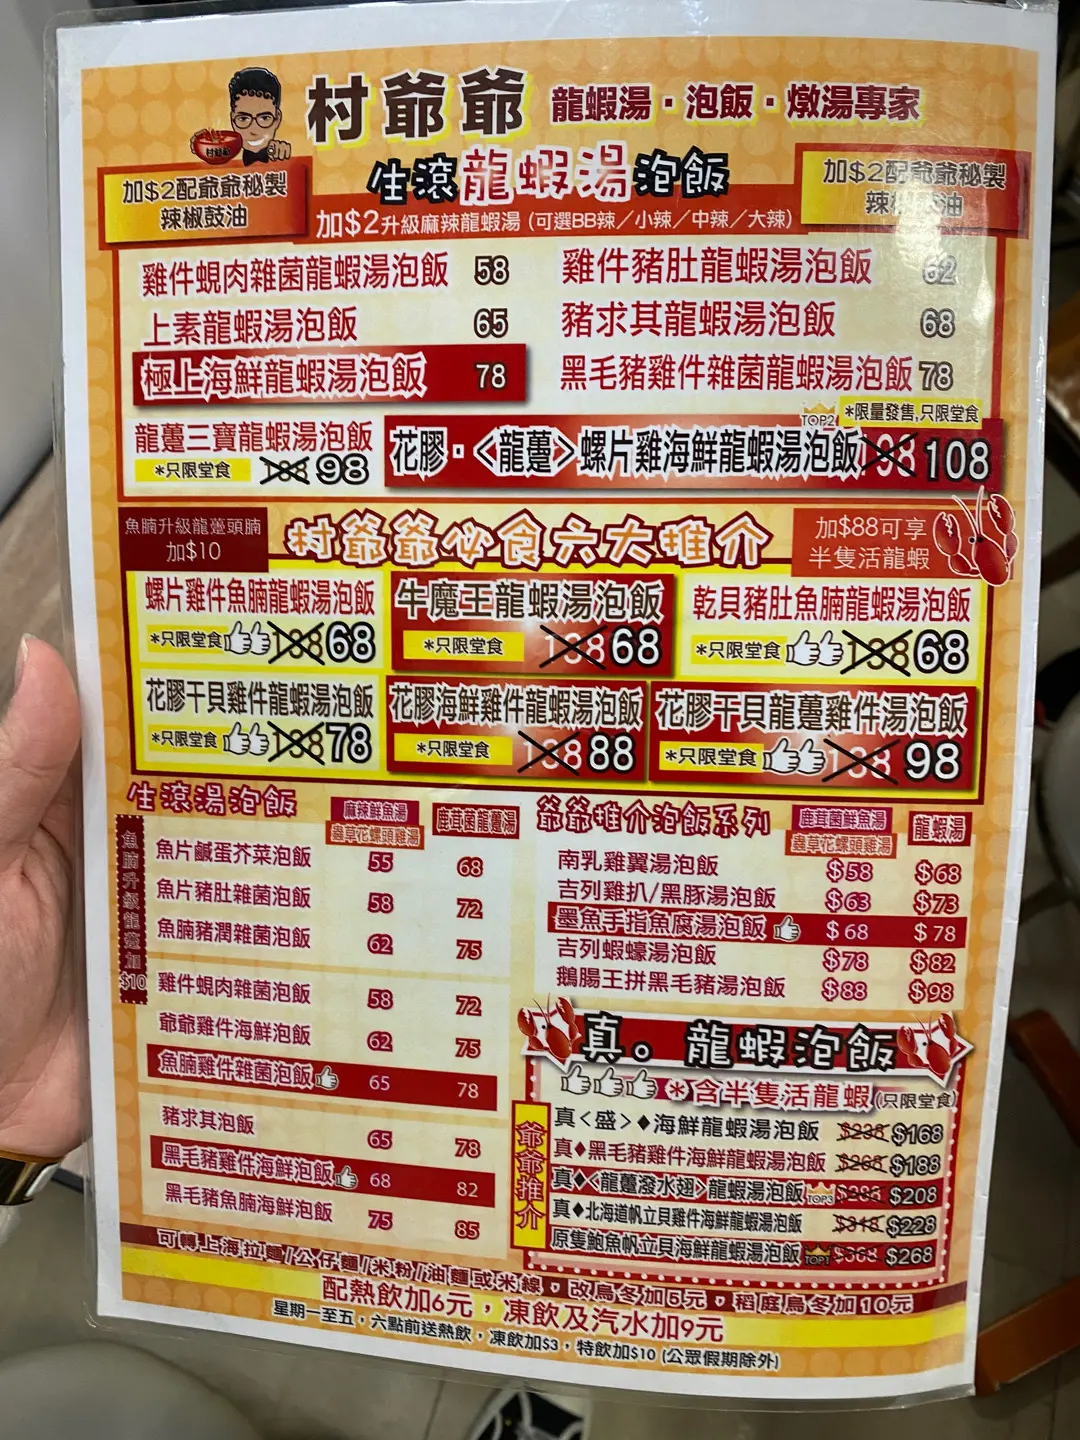 村爺爺
村爺爺 龍蝦湯・泡飯・燉湯專家
加$2配爺爺秘製
辣椒鼓油
生滾龍蝦湯泡飯
加$2配爺爺秘製
辣椒鼓油
加$2升級麻辣龍蝦湯 (可選BB辣／小辣／中辣／大辣)
雞件蜆肉雜菌龍蝦湯泡飯 58
雞件豬肚龍蝦湯泡飯 62
上素龍蝦湯泡飯 65
豬求其龍蝦湯泡飯 68
極上海鮮龍蝦湯泡飯 78
黑毛豬雞件雜菌龍蝦湯泡飯 78
龍躉三寶龍蝦湯泡飯
*只限堂食 98
TOP2 *限量發售,只限堂食
花膠・<龍躉>螺片雞海鮮龍蝦湯泡飯 198 108
魚腩升級龍躉頭腩
加$10
村爺爺必食六大推介
加$88可享
半隻活龍蝦
螺片雞件魚腩龍蝦湯泡飯
*只限堂食 138 68
牛魔王龍蝦湯泡飯
*只限堂食 138 68
乾貝豬肚魚腩龍蝦湯泡飯
*只限堂食 138 68
花膠干貝雞件龍蝦湯泡飯
*只限堂食 138 78
花膠海鮮雞件龍蝦湯泡飯
*只限堂食 138 88
花膠干貝龍躉雞件湯泡飯
*只限堂食 138 98
生滾湯泡飯
麻辣鮮魚湯
蟲草花螺頭雞湯
鹿茸菌龍躉湯
魚腩升級龍躉加$10
魚片鹹蛋芥菜泡飯 55 68
魚片豬肚雜菌泡飯 58 72
魚腩豬潤雜菌泡飯 62 75
雞件蜆肉雜菌泡飯 58 72
爺爺雞件海鮮泡飯 62 75
魚腩雞件雜菌泡飯 65 78
豬求其泡飯 65 78
黑毛豬雞件海鮮泡飯 68 82
黑毛豬魚腩海鮮泡飯 75 85
爺爺推介泡飯系列
鹿茸菌鮮魚湯
蟲草花螺頭雞湯
龍蝦湯
南乳雞翼湯泡飯 $58 $68
吉列雞扒/黑豚湯泡飯 $63 $73
墨魚手指魚腐湯泡飯 $68 $78
吉列蝦蠔湯泡飯 $78 $82
鵝腸王拼黑毛豬湯泡飯 $88 $98
真。龍蝦泡飯
*含半隻活龍蝦 (只限堂食)
爺爺推介
真<盛>♦海鮮龍蝦湯泡飯 $238 $168
真♦黑毛豬雞件海鮮龍蝦湯泡飯 $268 $188
真♦<龍躉潑水翅>龍蝦湯泡飯 TOP3 $288 $208
真♦北海道帆立貝雞件海鮮龍蝦湯泡飯 $318 $228
原隻鮑魚帆立貝海鮮龍蝦湯泡飯 TOP1 $368 $268
可轉上海拉麵/公仔麵/米粉/油麵或米線，改烏冬加5元，稻庭烏冬加10元
配熱飲加6元，凍飲及汽水加9元
星期一至五，六點前送熱飲，凍飲加$3，特飲加$10 (公眾假期除外)